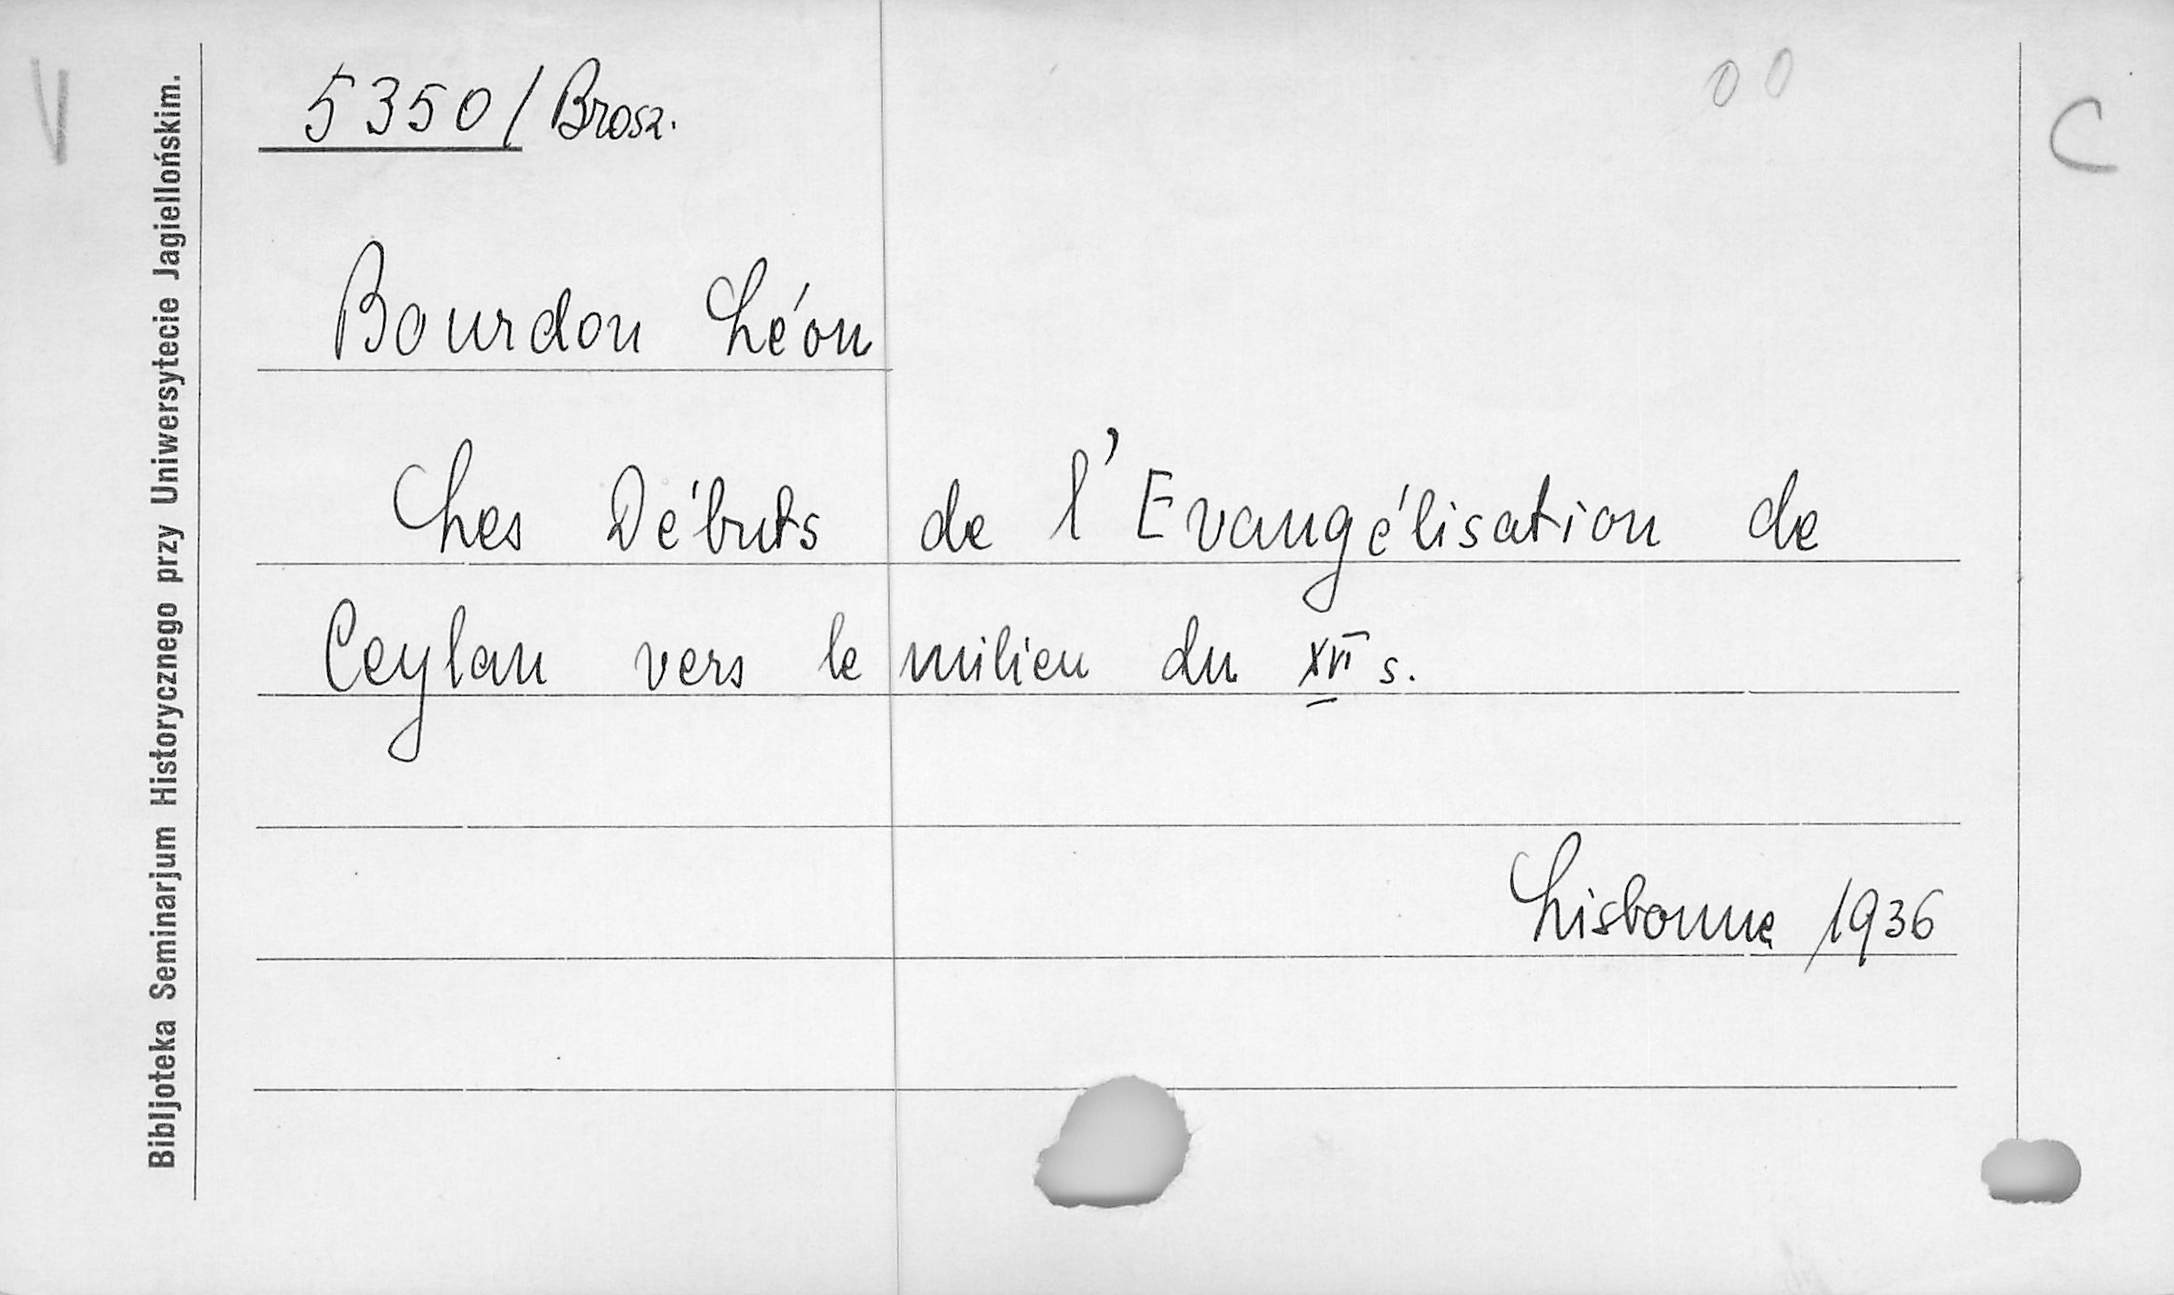 V
5350/Brosz.
00
C
Bourdon Léon
Les Débuts de l'Evangélisation de
Ceylan vers le milieu du XVI s.
Lisbonne 1936
Bibljoteka Seminarjum Historycznego przy Uniwersytecie Jagiellońskim.